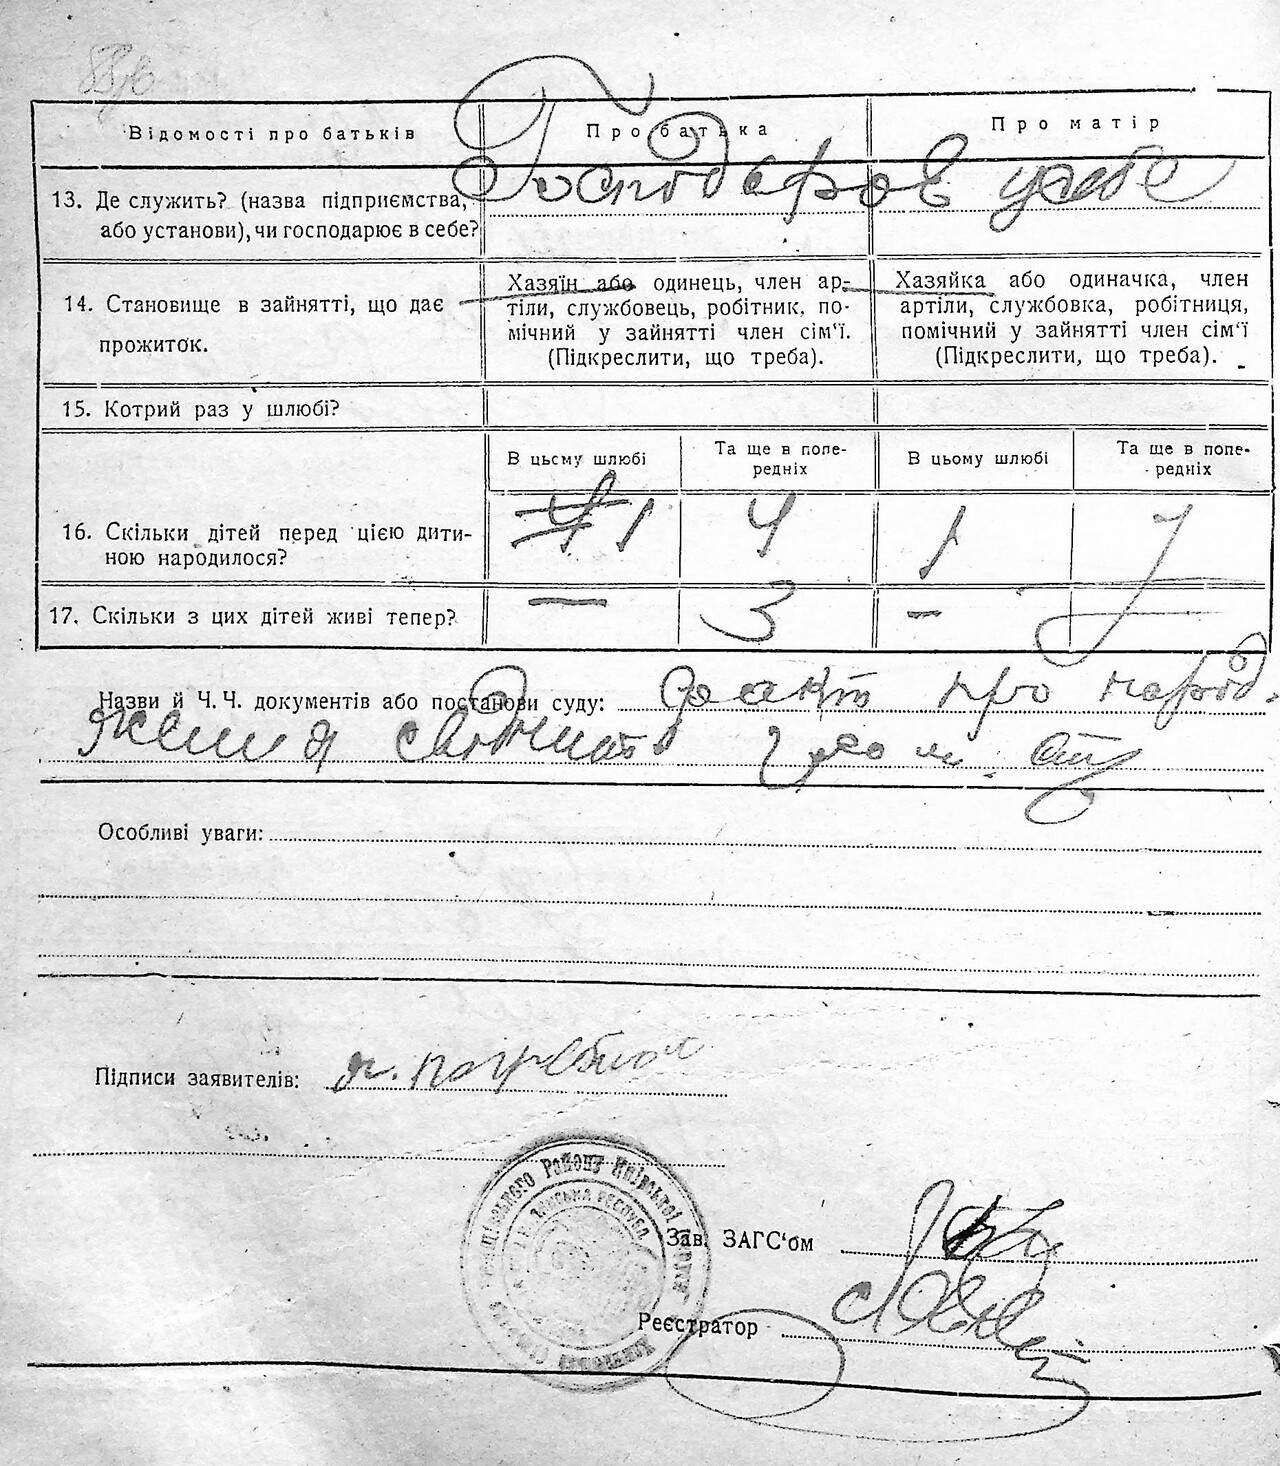 Відомості про батьків
Про батька
Про матір
13. Де служить? (назва підприємства, або установи), чи господарює в себе?
Господарюв у себе
14. Становище в зайнятті, що дає прожиток.
Хазяїн або одинець, член ар-
тіли, службовець, робітник, по-
мічний у зайнятті член сім'ї.
(Підкреслити, що треба).
Хазяйка або одиначка, член
артіли, службовка, робітниця,
помічний у зайнятті член сім'ї
(Підкреслити, що треба).
15. Котрий раз у шлюбі?
В цьому шлюбі
Та ще в попе-
редніх
В цьому шлюбі
Та ще в попе-
редніх
16. Скільки дітей перед цією дити-
ною народилося?
1 4 1
17. Скільки з цих дітей живі тепер?
— 3 -
Назви й Ч. Ч. документів або постанови суду: акт про народ-
ження
Особливі уваги:
Підписи заявителів:
Району Київської
Зав. ЗАГС'ом
Реєстратор